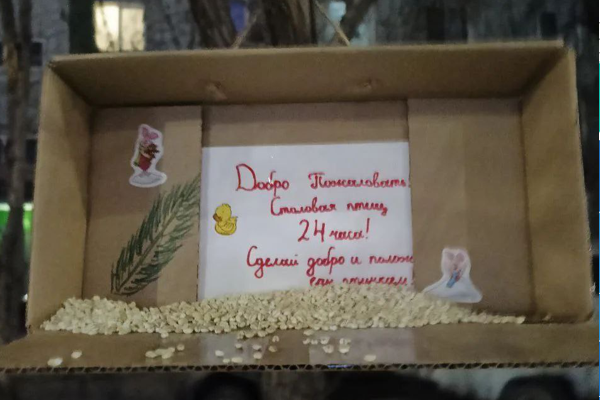 Добро Пожаловать
Столовая птиц
24 часа!
Сделай добро и
птичкам